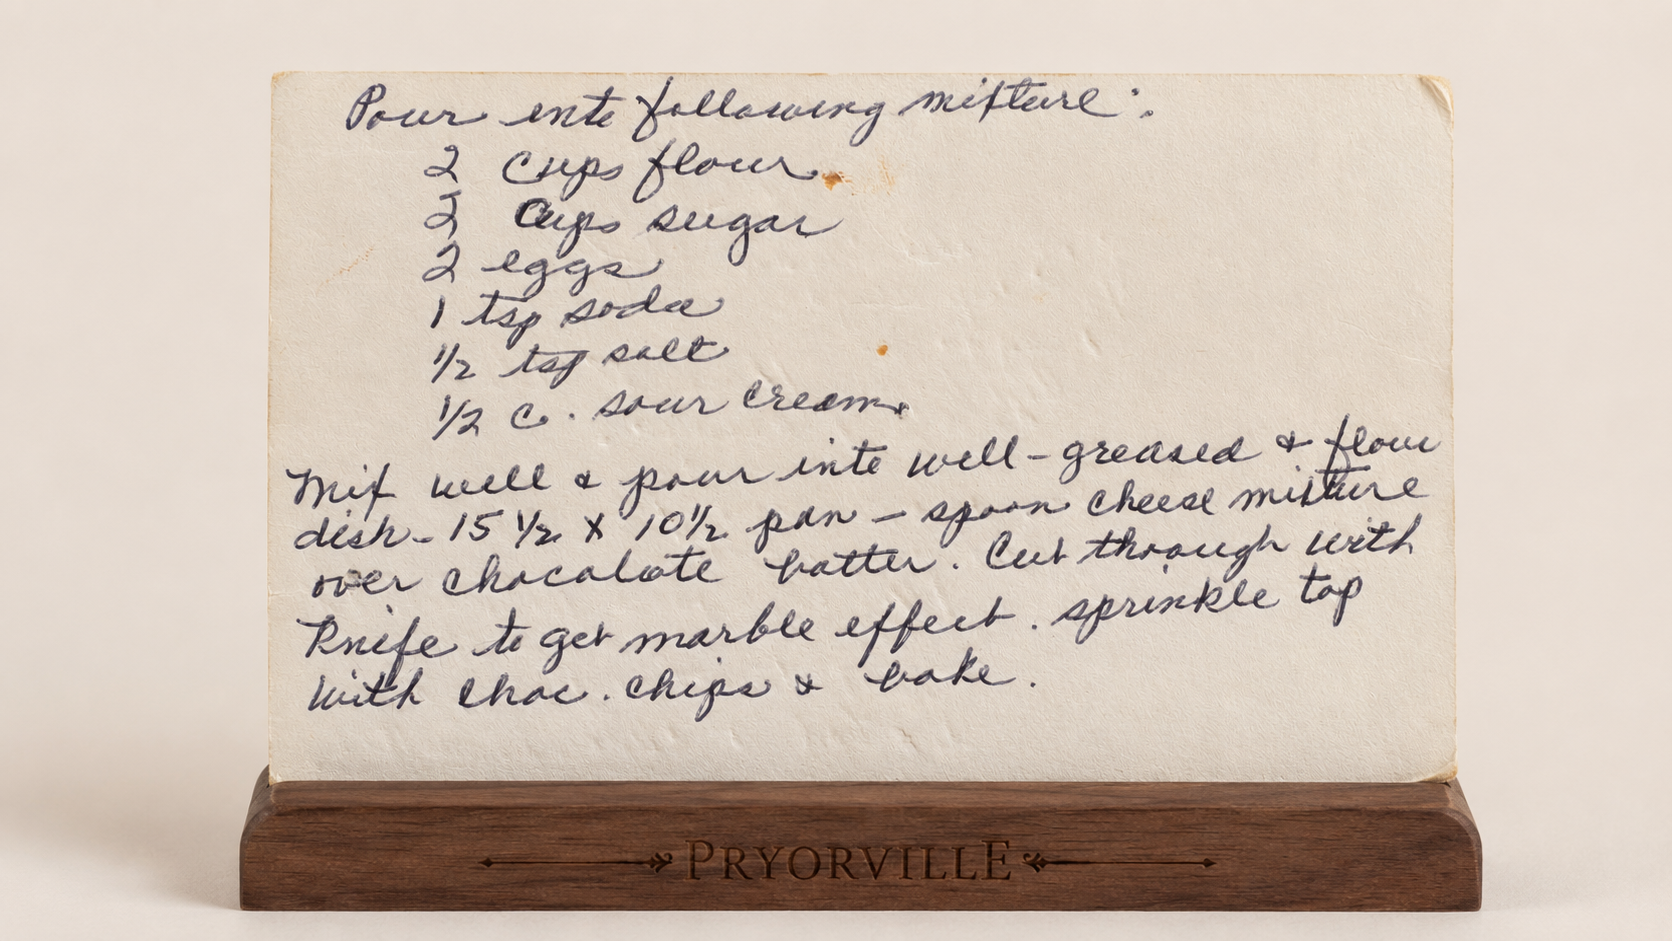 Pour into following mixture:
2 cups flour
2 cups sugar
2 eggs
1 tsp soda
1/2 tsp salt
1/2 c. sour cream
Mix well & pour into well-greased & flour
dish - 15 1/2 x 10 1/2 pan - spoon cheese mixture
over chocolate batter. Cut through with
knife to get marble effect. sprinkle top
with choc. chips & bake.
PRYORVILLE